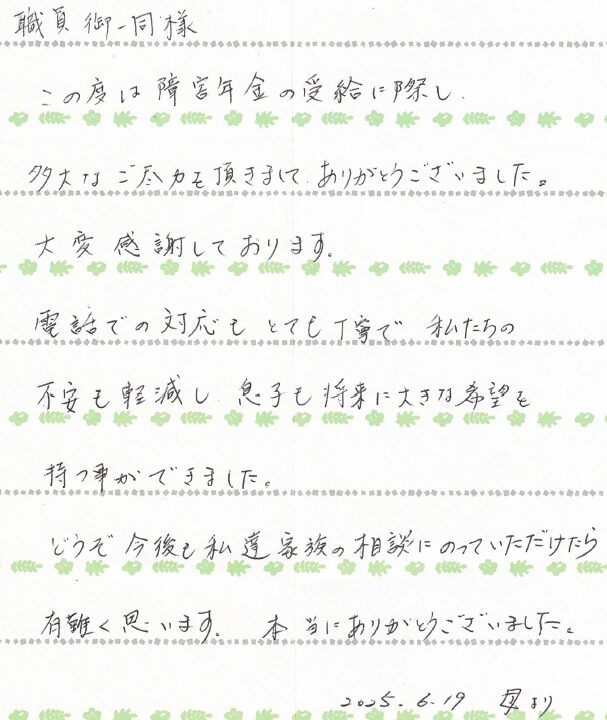 職員御一同様
この度は障害年金の受給に際し、
多大なご尽力を頂きまして、ありがとうございました。
大変感謝しております。
電話での対応もとても丁寧で 私たちの
不安も軽減し、息子も将来に大きな希望を
持つ事ができました。
どうぞ今後も私達家族の相談にのっていただけたら
有難く思います。 本当にありがとうございました。
2025.6.19 母より